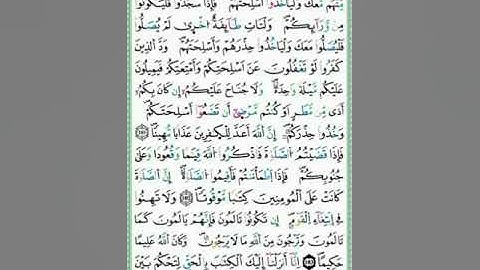 مِّنْهُم مَّعَكَ وَلْيَأْخُذُوٓا۟ أَسْلِحَتَهُمْ فَإِذَا سَجَدُوا۟ فَلْيَكُونُوا۟
مِنْ وَّرَآئِكُمْ وَلْتَاتِ طَآئِفَةٌ أُخْر۪يٰ لَمْ يُصَلُّوا۟
فَلْيُصَلُّوا۟ مَعَكَ وَلْيَاخُذُوا۟ حِذْرَهُمْ وَأَسْلِحَتَهُمْ وَدَّ ٱلذِينَ
كَفَرُوا۟ لَوْ تَغْفُلُونَ عَنْ أَسْلِحَتِكُمْ وَأَمْتِعَتِكُمْ فَيَمِيلُونَ
عَلَيْكُم مَّيْلَةً وَٰحِدَةً وَلَا جُنَاحَ عَلَيْكُمُۥٓ إِن كَانَ بِكُمُۥٓ
أَذىً مِّن مَّطَرٍ اَوْ كُنتُم مَّرْض۪يٰٓ أَن تَضَعُوٓا۟ أَسْلِحَتَكُمْ
وَخُذُوا۟ حِذْرَكُمُۥٓ إِنَّ ٱللَّهَ أَعَدَّ لِلْكٰ۪فِرِينَ عَذَابًا مُّهِينًا
فَإِذَا قَضَيْتُمُ ٱلصَّلَوٰةَ فَاذْكُرُوا۟ ٱللَّهَ قِيَٰمًا وَقُعُودًا وَعَلَىٰ
جُنُوبِكُمْ فَإِذَا ٱطْمَأْنَنتُمْ فَأَقِيمُوا۟ ٱلصَّلَوٰةَ إِنَّ ٱلصَّلَوٰةَ
كَانَتْ عَلَى ٱلْمُومِنِينَ كِتَٰبًا مَّوْقُوتًا وَلَا تَهِنُوا۟
فِي ٱبْتِغَآءِ ٱلْقَوْمِ إِن تَكُونُوا۟ تَالَمُونَ فَإِنَّهُمْ يَالَمُونَ كَمَا
تَالَمُونَ وَتَرْجُونَ مِنَ ٱللَّهِ مَا لَا يَرْجُونَ وَكَانَ ٱللَّهُ عَلِيمًا
حَكِيمًا إِنَّآ أَنزَلْنَآ إِلَيْكَ ٱلْكِتَٰبَ بِالْحَقِّ لِتَحْكُمَ بَيْنَ